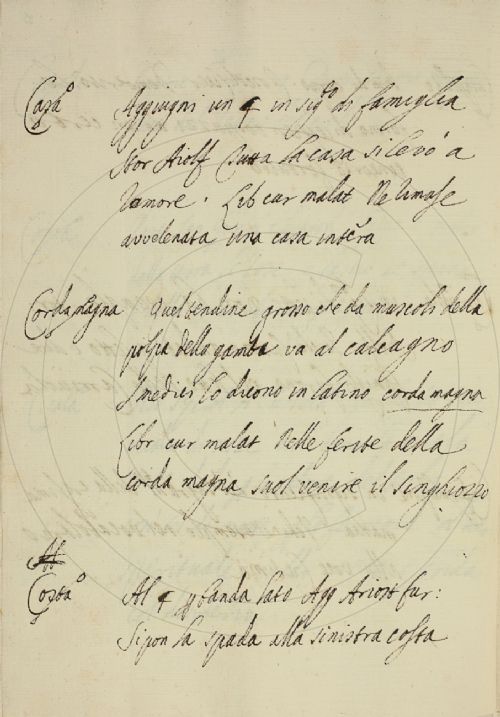 Casa° Aggiugni un ¶ in sig.to di famiglia
Stor Aiolf Tutta la casa si levò a
Romore. Lib cur malat Ne rimase
avvelenata una casa intera
Corda magna Quel tendine grosso che da muscoli della
polpa della gamba va al calcagno
I medici lo dicono in latino corda magna
Libr cur malat Nelle ferite della
corda magna suol venire il singhiozzo
Costa° Al ¶ p banda lato Agg Ariost fur:
Si pon la spada alla sinistra costa